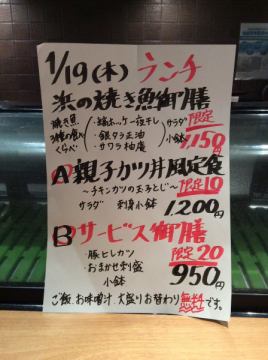 1/19(木) ランチ
浜の焼き魚御膳
焼き魚
3種の食べ
くらべ
・縞ホッケ一夜干し
・銀タラ正油
・サワラ柚庵
サラダ
小鉢
限定
1150円
A 親子カツ丼風定食
～チキンカツの玉子とじ～
限定10
サラダ 刺身小鉢
1200円
B サービス御膳
限定20
・豚ヒレカツ
・おまかせ刺盛
小鉢
950円
ご飯、お味噌汁、大盛りお替わり無料です。